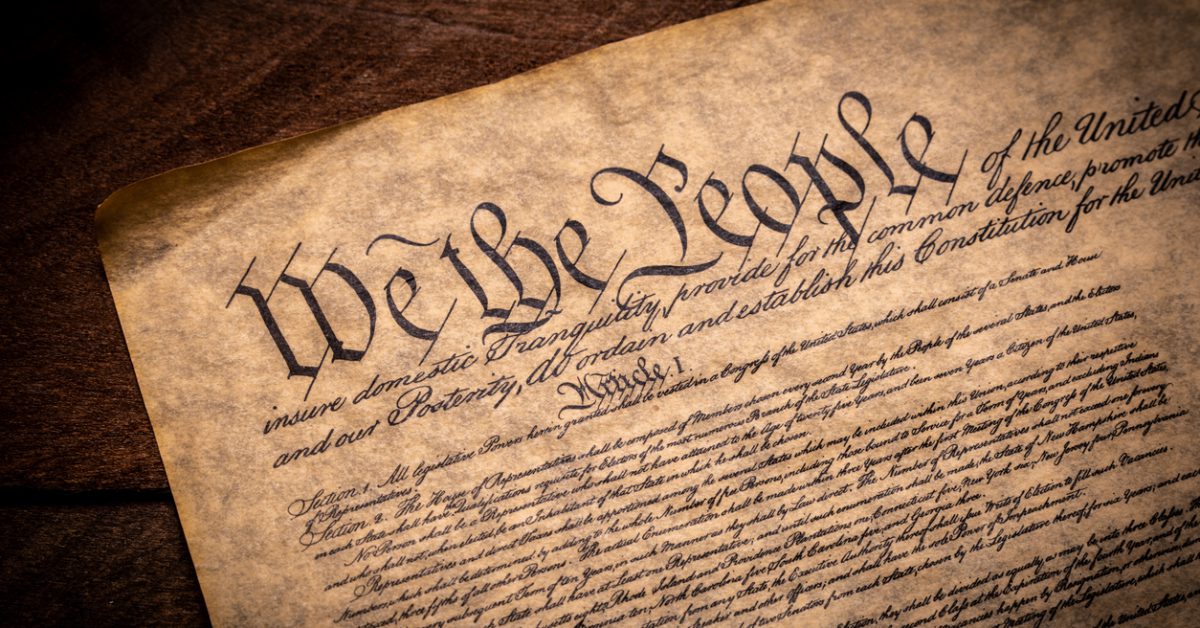 We the People of the United
insure domestic Tranquility, provide for the common defence, promote
and our Posterity, do ordain and establish this Constitution for the
Article. I.
Section. 1. All legislative Powers herein granted shall be vested in a Congress of the United States, which shall consist of a Senate and House
of Representatives.
Section. 2. The House of Representatives shall be composed of Members chosen every second Year by the People of the several States, and the Electors
in each State shall have Qualifications requisite for Electors of the most numerous Branch of the State Legislature.
No Person shall be a Representative who shall not have attained to the Age of twenty five Years, and been seven Years a Citizen of the United States,
and who shall not, when elected, be an Inhabitant of that State in which he shall be chosen.
Representatives and direct Taxes shall be apportioned among the several States which may be included within this Union, according to their respective
Numbers, which shall be determined by adding to the whole Number of free Persons, including those bound to Service for a Term of Years, and excluding Indians
three fifths of all other Persons. The actual Enumeration shall be made within three Years after the first Meeting of the Congress of the United States,
every subsequent Term of ten Years, in such Manner as they shall by Law direct. The Number of Representatives shall not exceed one for every
State shall have at Least one Representative; and until such enumeration shall be made, the State of New Hampshire shall be
eight, Rhode Island and Providence Plantations one, Connecticut five, New York six, New Jersey four, Pennsylvania
North Carolina five, South Carolina five, and Georgia three.
from any State, the Executive Authority thereof shall issue Writs of Election to fill such Vacancies.
and other Officers; and shall have the sole Power of Impeachment.
two Senators from each State, chosen by the Legislature thereof, for six Years; and
they shall be divided as equally as may be into three Classes.